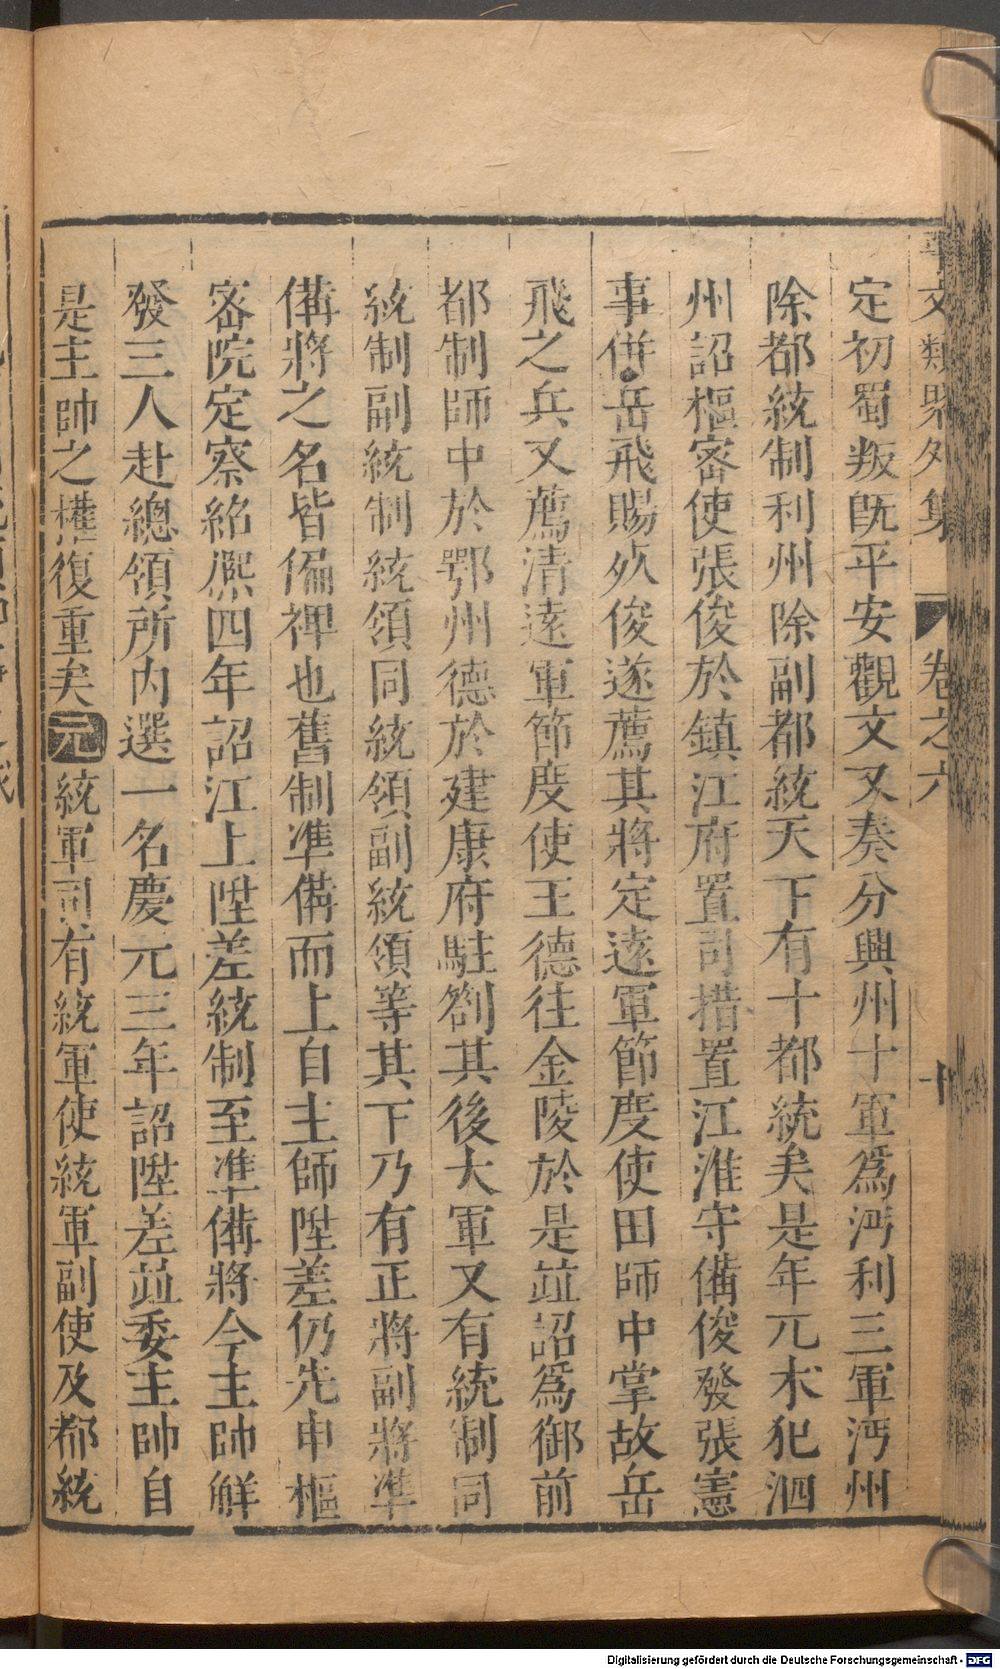 事文類聚外集　卷之六　十
定初蜀叛既平安觀文又奏分興州十軍爲沔利三軍沔州
除都統制利州除副都統天下有十都統矣是年元朮犯泗
州詔樞密使張俊於鎮江府置司措置江淮守備俊發張憲
事併岳飛賜死俊遂薦其將定遠軍節度使田師中掌故岳
飛之兵又薦清遠軍節度使王德往金陵於是並詔爲御前
都制師中於鄂州德於建康府駐劄其後大軍又有統制同
統制副統制統領同統領副統領等其下乃有正將副將準
備將之名皆偏裨也舊制準備而上自主師陞差仍先申樞
密院定察紹熙四年詔江上陞差統制至準備將令主帥解
發三人赴總領所内選一名慶元三年詔陞差並委主帥自
是主帥之權復重矣元統軍司有統軍使統軍副使及都統
Digitalisierung gefördert durch die Deutsche Forschungsgemeinschaft - DFG